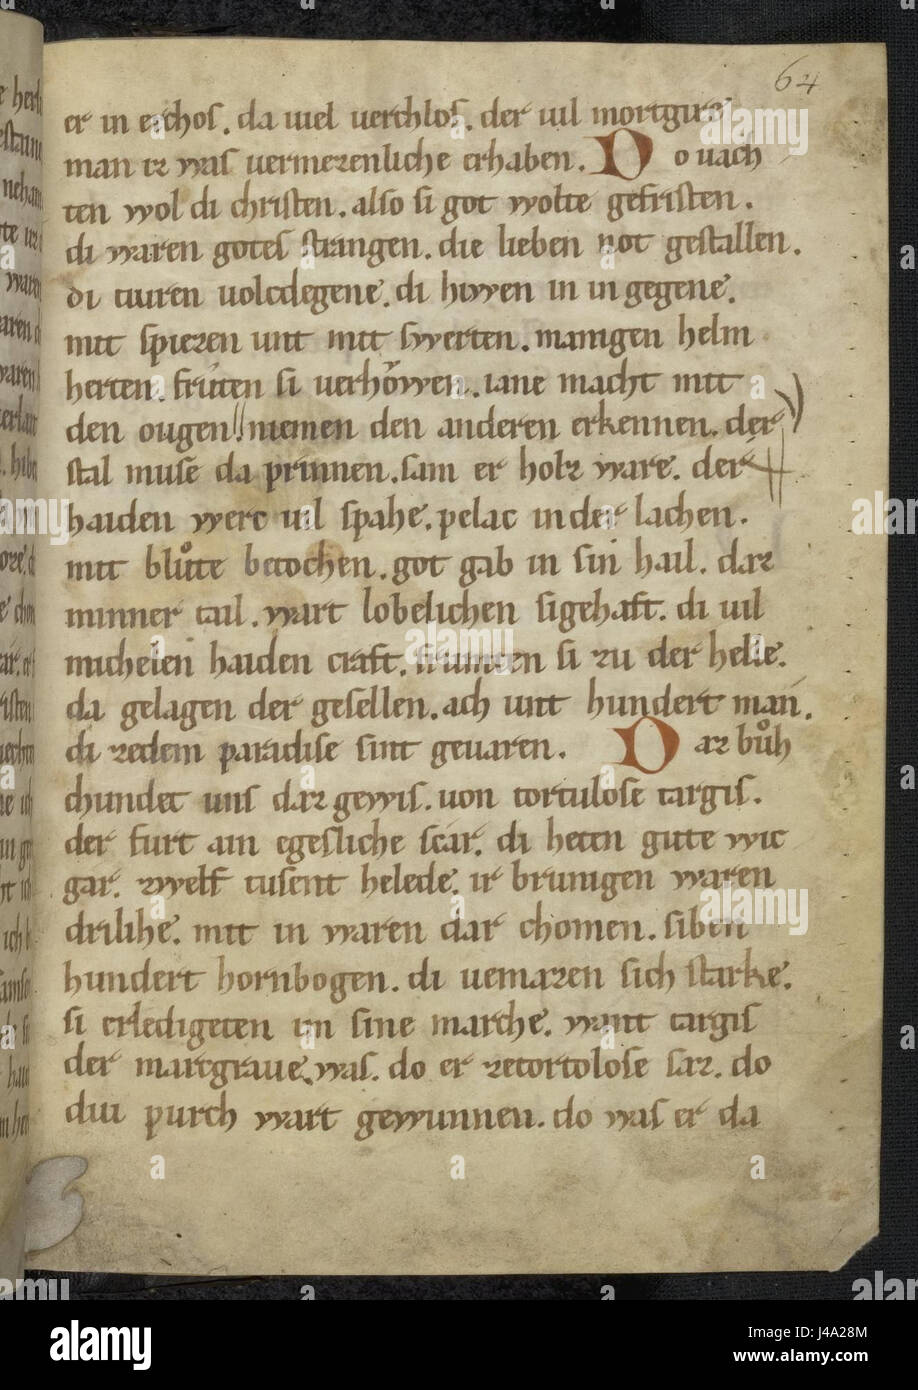 64
er in erchos. da uiel uerchlos. der uil mortgire
man er was uermezenliche erhaben. Do uach
ten wol di christen. also si got wolte gefristen.
di waren gotes strangen. die lieben not gestallen.
di tiuren uolcdegene. di hiwen in in gegene.
mit spiezen unt mit swerten. manigen helm
herten. frůten si uerhŏwen. iane macht mit
den ougen niemen den anderen erkennen. der
stal muse da prinnen. sam er holz ware. der
haiden werc uil spahe. pelac in der lachen.
mit blůte betochen. got gab in sin hail. daz
minner tail. wart lobelichen sigehaft. di uil
michelen haiden craft. frumten si zu der helle.
da gelagen der gesellen. ach unt hundert man.
di zedem paradise sint geuaren. Daz bůh
chundet uns daz gewis. uon tortulose targis.
der furt ain egesliche scar. di heten gute wic
gar. zwelf tusent helede. ir brunigen waren
drilihe. mit in waren dar chomen. siben
hundert hornbogen. di uemazen sich starke.
si erledigeten im sine marche. want targis
der margraue was. do er zetortolose saz. do
diu purch wart gewunnen. do was er da
alamy
J4A28M
www.alamy.com